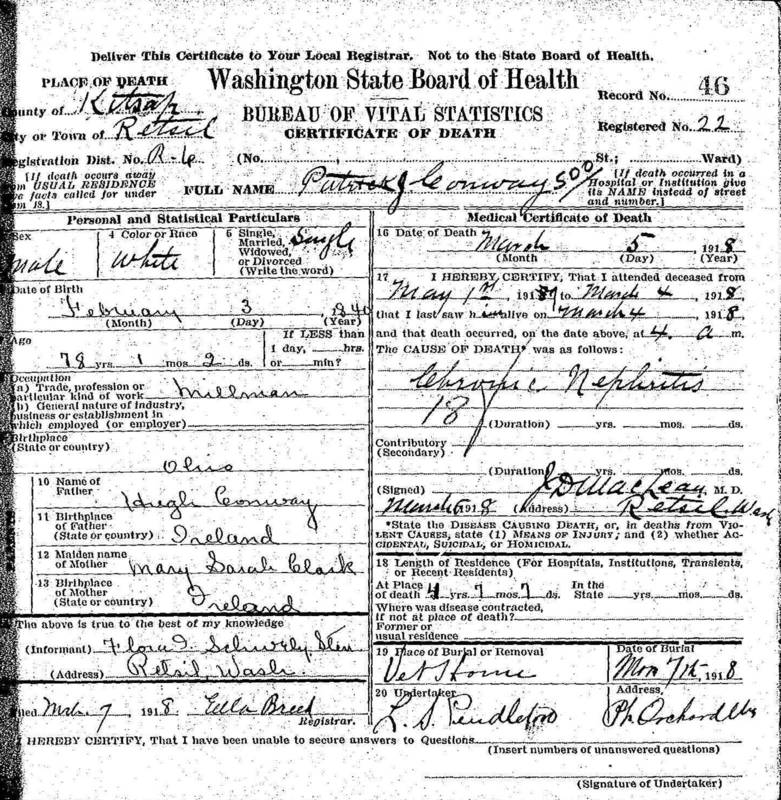 Deliver This Certificate to Your Local Registrar. Not to the State Board of Health.
PLACE OF DEATH
Washington State Board of Health
Record No. 46
County of Kitsap
BUREAU OF VITAL STATISTICS
City or Town of Retsil
CERTIFICATE OF DEATH
Registered No. 22
Registration Dist. No. R-6 (No. , St.; Ward)
[If death occurs away
from USUAL RESIDENCE
give facts called for under
Item 18.]
FULL NAME Patrick J Conway 500
[If death occurred in a
Hospital or Institution give
its NAME instead of street
and number.]
Personal and Statistical Particulars
Sex male
4 Color or Race White
5 Single,
Married,
Widowed,
or Divorced
(Write the word)
Single
Date of Birth
February 3, 1840
(Month) (Day) (Year)
Age
78 yrs. 1 mos. 2 ds.
If LESS than
1 day, hrs.
or min?
Occupation
(a) Trade, profession or
particular kind of work Millman
(b) General nature of industry,
business or establishment in
which employed (or employer)
Birthplace
(State or country)
Ohio
10 Name of
Father Hugh Conway
11 Birthplace
of Father
(State or country) Ireland
12 Maiden name
of Mother Mary Sarah Clark
13 Birthplace
of Mother
(State or country) Ireland
The above is true to the best of my knowledge
(Informant)
(Address) Retsil, Wash
Filed Mch. 7, 1918 Ella Breed
Registrar.
Medical Certificate of Death
16 Date of Death March 5, 1918
(Month) (Day) (Year)
17 I HEREBY CERTIFY, That I attended deceased from
May 1st, 191 to March 4, 1918,
that I last saw him alive on March 4, 1918
and that death occurred, on the date above, at 4. a m.
The CAUSE OF DEATH* was as follows:
Chronic Nephritis
18
(Duration) yrs. mos. ds.
Contributory
(Secondary)
(Duration) yrs. mos. ds.
(Signed) J D MacLean, M. D.
March 1918 (Address) Retsil Wash
*State the DISEASE CAUSING DEATH, or, in deaths from VIOLENT CAUSES, state (1) MEANS OF INJURY; and (2) whether ACCIDENTAL, SUICIDAL, or HOMICIDAL.
18 Length of Residence (For Hospitals, Institutions, Transients,
or Recent Residents)
At Place
of death 4 yrs. 7 mos. 7 ds.
In the
State yrs. mos. ds.
Where was disease contracted,
if not at place of death?
Former or
usual residence
19 Place of Burial or Removal
Vet Home
Date of Burial
7th, 1918
20 Undertaker
L. S. Pendleton
Address,
Pt. Orchard
I HEREBY CERTIFY, That I have been unable to secure answers to Questions
(Insert numbers of unanswered questions)
(Signature of Undertaker)